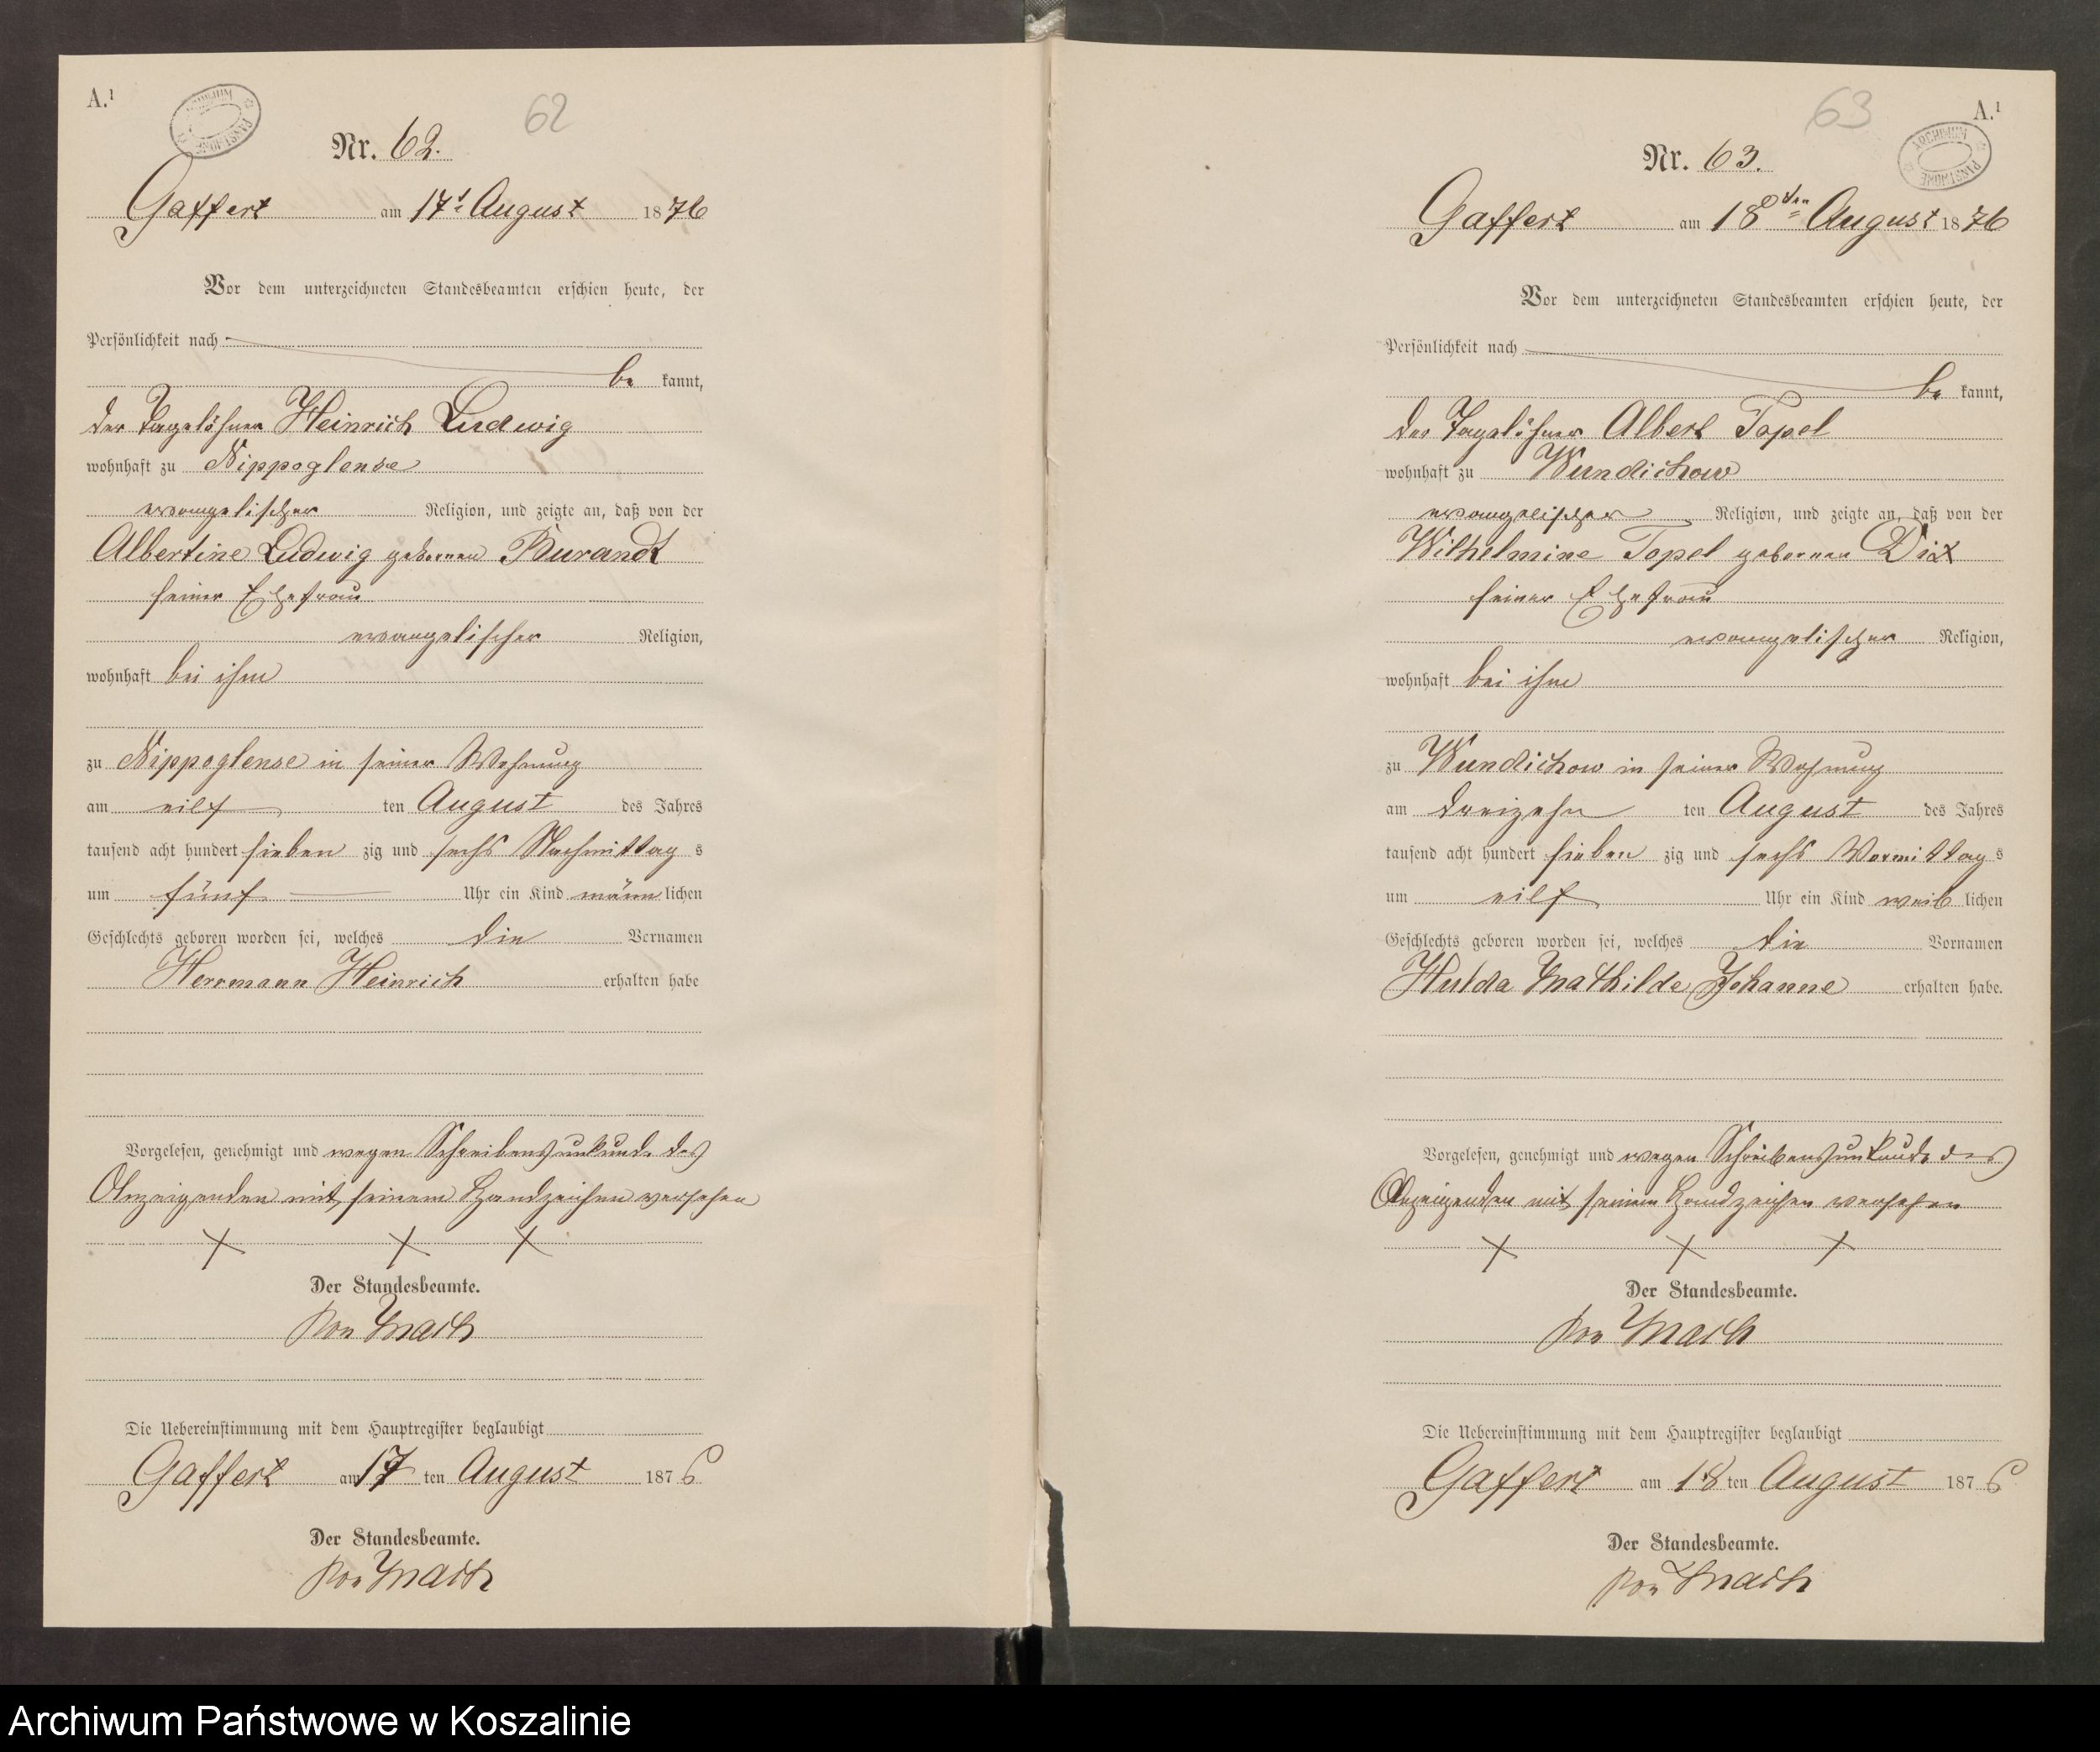 A.¹
ARCHIWUM PAŃSTWOWE
62
Nr. 62.
Gaffert am 17t August 1876
Vor dem unterzeichneten Standesbeamten erschien heute, der
Persönlichkeit nach
be kannt,
der Tagelöhner Heinrich Ludwig
wohnhaft zu Nippoglense
evangelischer Religion, und zeigte an, daß von der
Albertine Ludwig geborenen Burandt
seiner Ehefrau
evangelischer Religion,
wohnhaft bei ihm
zu Nippoglense in seiner Wohnung
am eilf ten August des Jahres
tausend acht hundert sieben zig und sechs Nachmittag s
um fünf Uhr ein Kind männ lichen
Geschlechts geboren worden sei, welches die Vornamen
Herrmann Heinrich erhalten habe
Vorgelesen, genehmigt und wegen Schreibensunkunde des
Anzeigenden mit seinem Handzeichen versehen
X X X
Der Standesbeamte.
von Mach
Die Uebereinstimmung mit dem Hauptregister beglaubigt
Gaffert am 17 ten August 1876
Der Standesbeamte.
von Mach
63
A.¹
ARCHIWUM PAŃSTWOWE
Nr. 63.
Gaffert am 18ten August 1876
Vor dem unterzeichneten Standesbeamten erschien heute, der
Persönlichkeit nach
be kannt,
der Tagelöhner Albert Topel
wohnhaft zu Wundichow
evangelischer Religion, und zeigte an, daß von der
Wilhelmine Topel geborenen Dix
seiner Ehefrau
evangelischer Religion,
wohnhaft bei ihm
zu Wundichow in seiner Wohnung
am dreizehn ten August des Jahres
tausend acht hundert sieben zig und sechs Vormittag s
um eilf Uhr ein Kind weib lichen
Geschlechts geboren worden sei, welches die Vornamen
Hulda Mathilde Johanne erhalten habe.
Vorgelesen, genehmigt und wegen Schreibensunkunde des
Anzeigenden mit seinem Handzeichen versehen
X X X
Der Standesbeamte.
von Mach
Die Uebereinstimmung mit dem Hauptregister beglaubigt
Gaffert am 18 ten August 1876
Der Standesbeamte.
von Mach
Archiwum Państwowe w Koszalinie